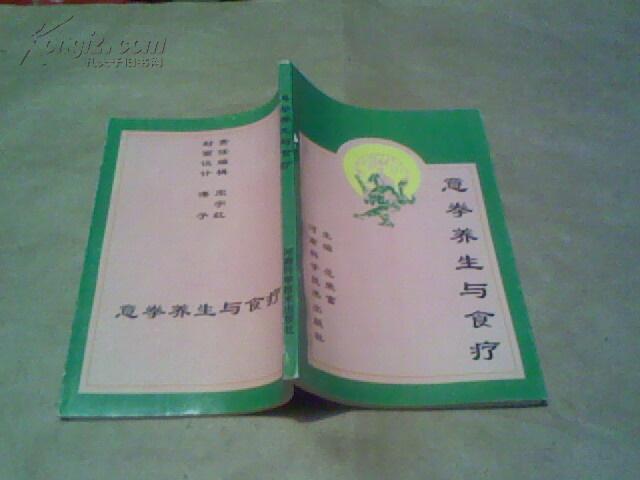 Kongfz.com
孔夫子旧书网
意拳养生与食疗
主编 范
河南科学技术出版社
意拳养生与食疗
河南科学技术出版社
责任编辑
封面设计
意拳养生与食疗